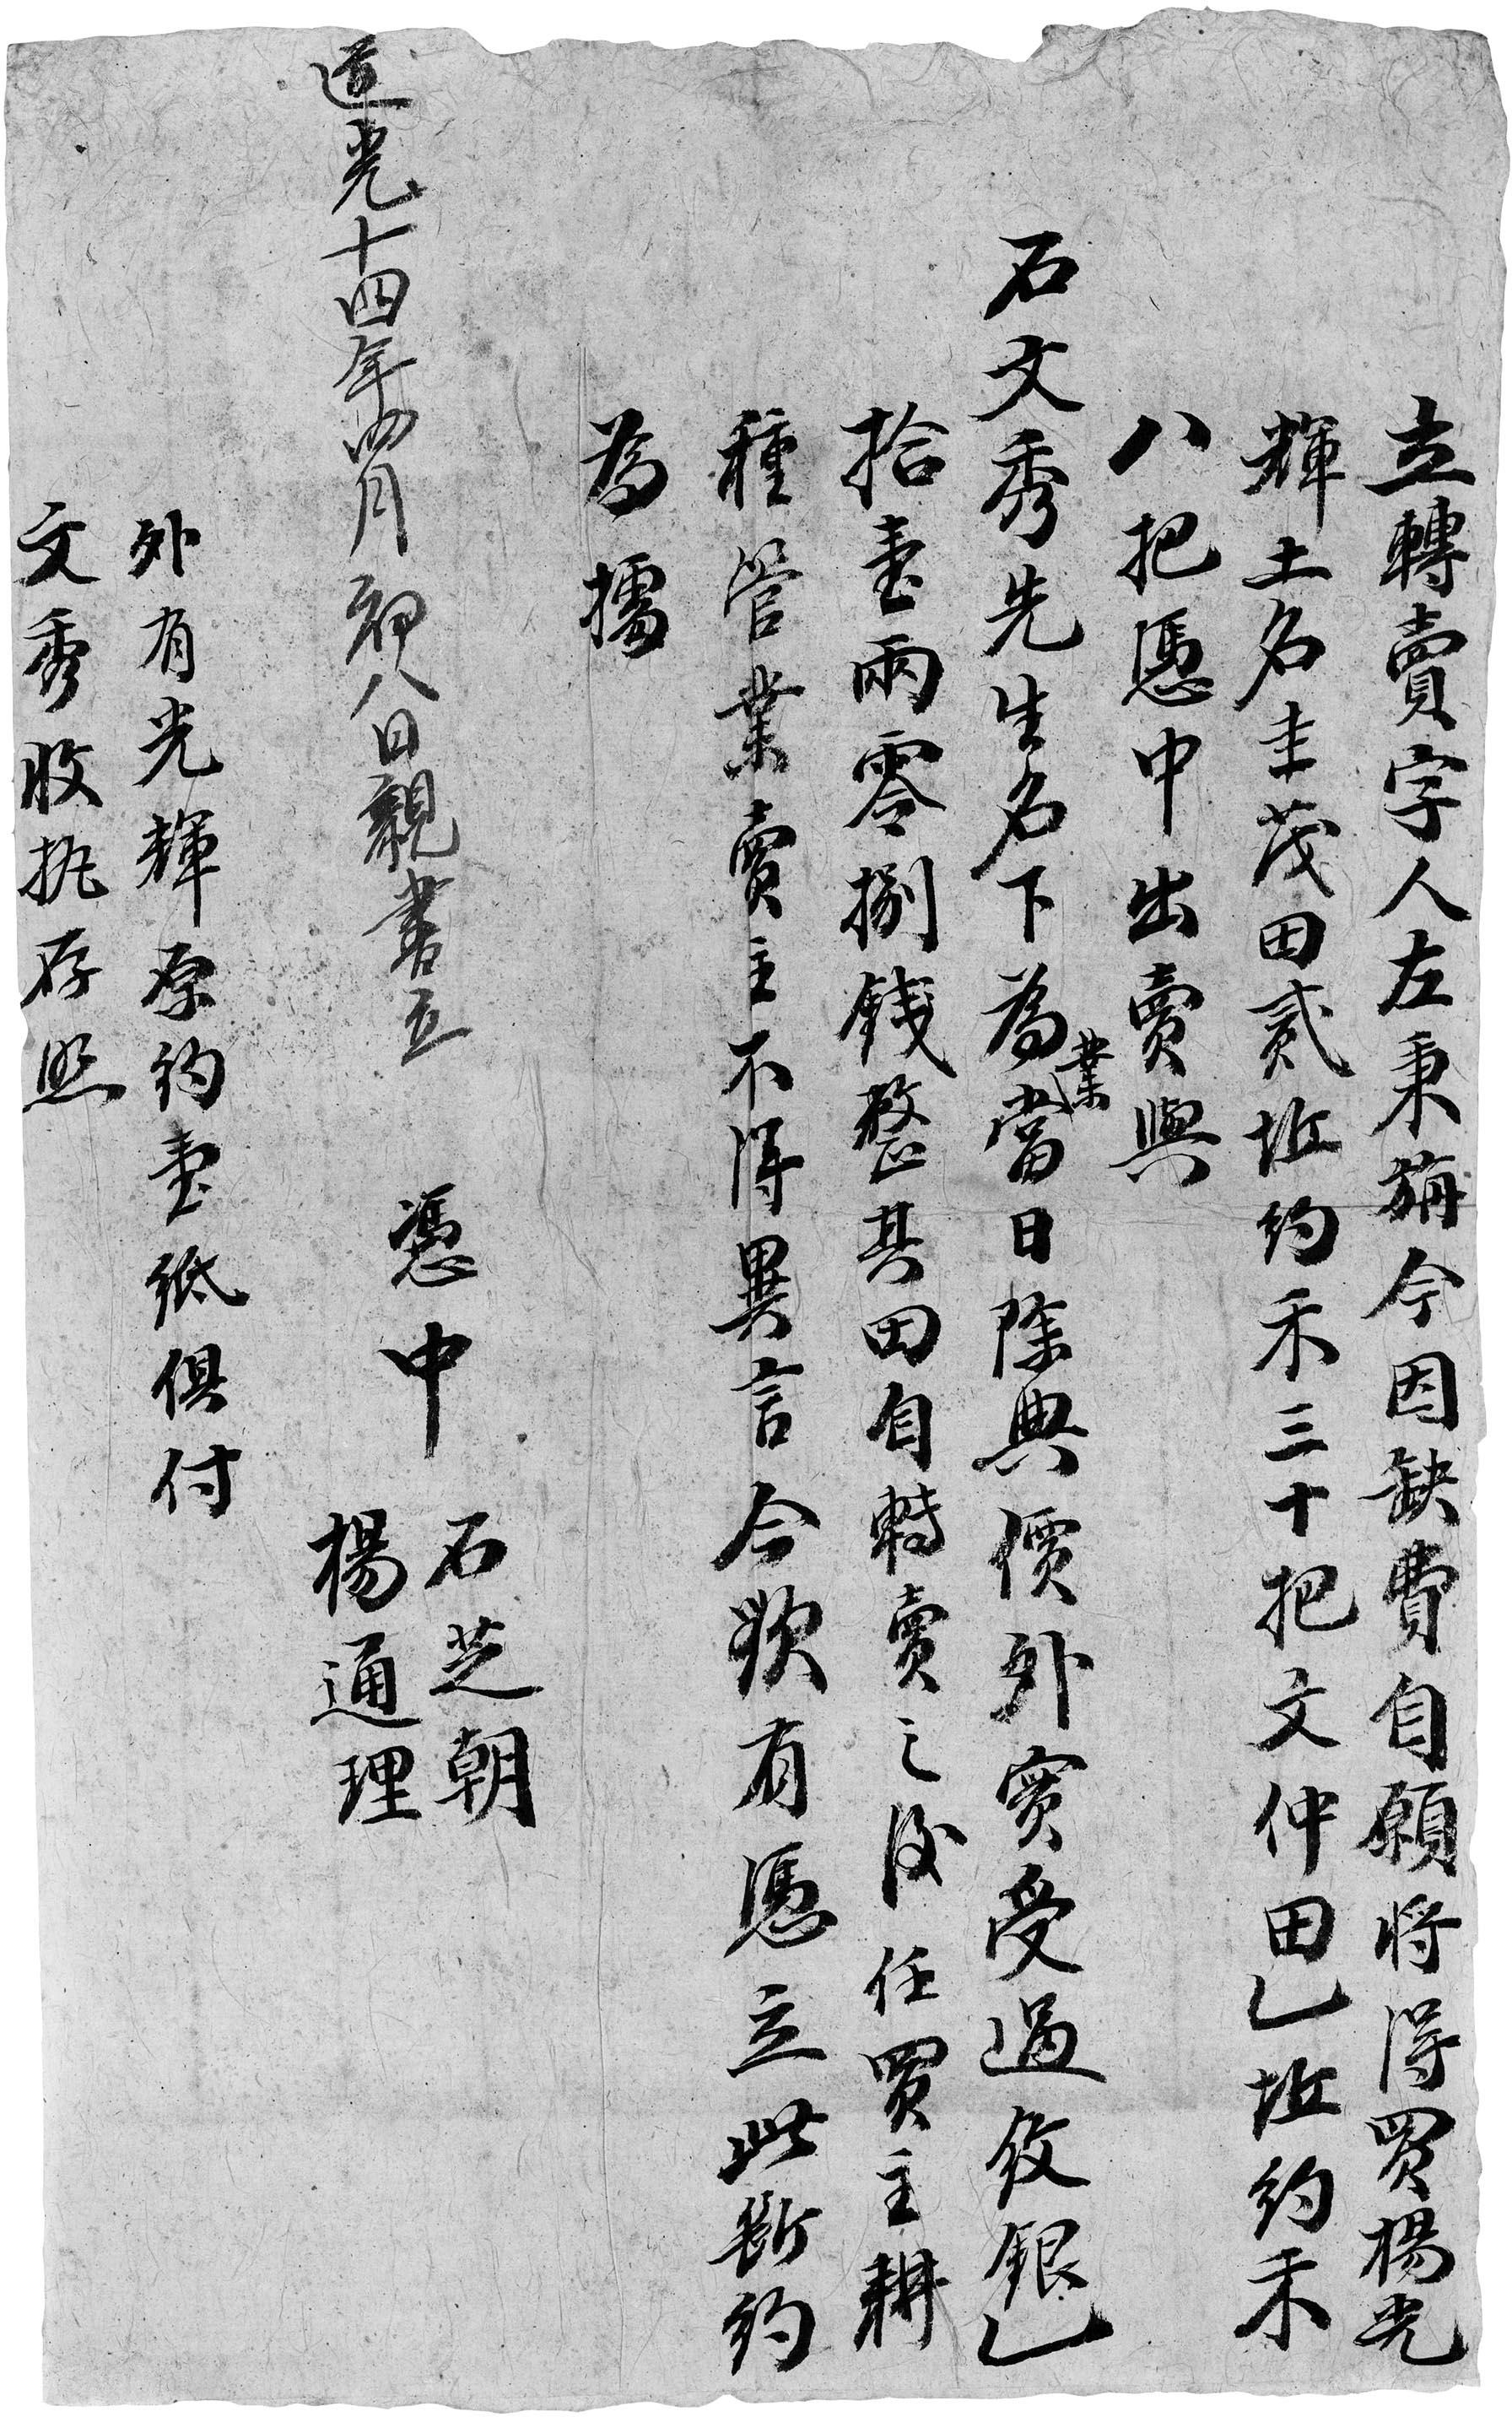 立轉賣字人左秉旃今因缺費自願將得買楊光
輝土名圭茂田貳坵約禾三十把文仲田乚坵約禾
八把憑中出賣與
石文秀先生名下為業當日除典價外實受過紋銀乚
拾壹兩零捌錢整其田自轉賣之後任買主耕
種管業賣主不得異言今欲有憑立此斷約
為據
道光十四年四月初八日親書立
憑中
石芝朝
楊通理
外有光輝原約壹紙俱付
文秀收執存照